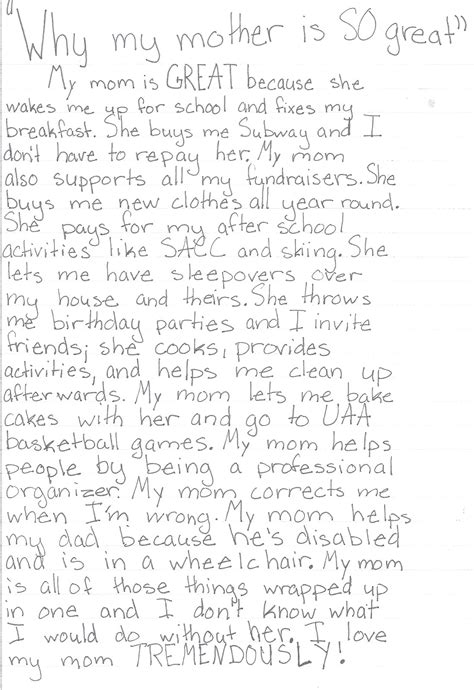 "Why my mother is SO great"
My mom is GREAT because she
wakes me up for school and fixes my
breakfast. She buys me Subway and I
don't have to repay her. My mom
also supports all my fundraisers. She
buys me new clothes all year round.
She pays for my after school
activities like SACC and skiing. She
lets me have sleepovers over
my house and theirs. She throws
me birthday parties and I invite
friends; she cooks, provides
activities, and helps me clean up
afterwards. My mom lets me bake
cakes with her and go to UAA
basketball games. My mom helps
people by being a professional
organizer. My mom corrects me
when I'm wrong. My mom helps
my dad because he's disabled
and is in a wheelchair. My mom
is all of those things wrapped up
in one and I don't know what
I would do without her. I love
my mom TREMENDOUSLY!